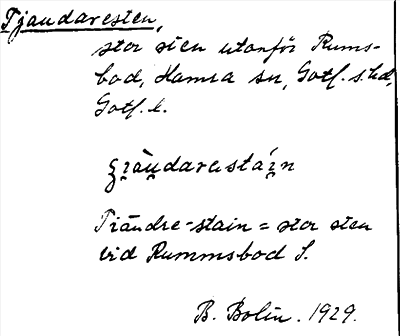 Tjaudaresten,
stor sten utanför Rums-
bod, Hamra sn, Gotl. s. hd,
Gotl. l.
Tiaudre-stain = stor sten
vid Rummsbod S.
B. Bolin. 1929.